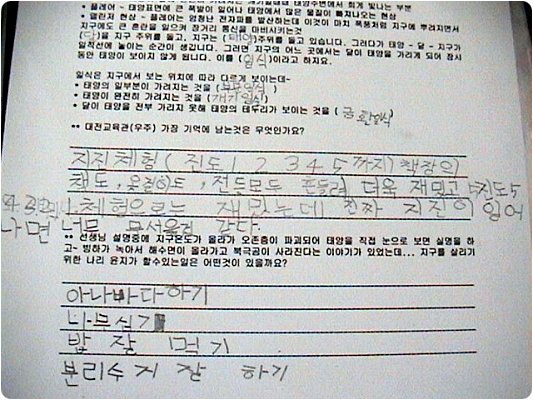 • 플레어 - 태양표면에 큰 폭발이 일어나 태양에서 많은 물질이 튀쳐나오는 현상
• 델린저 현상 - 플레어는 엄청난 전자파를 발산하는데 이것이 마치 폭풍처럼 지구에 뿌려지면서
지구에도 큰 혼란을 일으켜 장거리 통신을 마비시키는것
(달)을 지구 주위를 돌고, 지구는 (태양)주위를 돌고 있습니다. 그러다가 태양 - 달 - 지구가
일직선에 놓이는 순간이 생깁니다. 그러면 지구의 어느 곳에서는 달이 태양을 가리게 되어 잠시
동안 태양이 보이지 않게 됩니다. 이를 (일식)이라고 하지요.
일식은 지구에서 보는 위치에 따라 다르게 보이는데~
• 태양의 일부분이 가려지는 것을 (부분일식)
• 태양이 완전히 가려지는 것을 (개기일식)
• 달이 태양을 전부 가리지 못해 태양의 테두리가 보이는 것을 (금환일식)
•• 대전교육관(우주) 가장 기억에 남는것은 무엇인가요?
지진체험( 진도 1 2 3 4. 5 까지) 책장의
책도, 옷걸이도, 전등모두 흔들려 더욱 재밌고 진도5
체험으로는 재밌는데 진짜 지진이 일어
나면 너무 무서울것 같다.
•• 선생님 설명중에 지구온도가 올라가 오존층이 파괴되어 태양을 직접 눈으로 보면 실명을 하
고~ 빙하가 녹아서 해수면이 올라가고 북극곰이 사라진다는 이야기가 있었는데... 지구를 살리기
위한 나리 윤지가 할수있는일은 어떤것이 있을까요?
아나바다하기
나무심기
밥 잘 먹기
분리수거 잘 하기